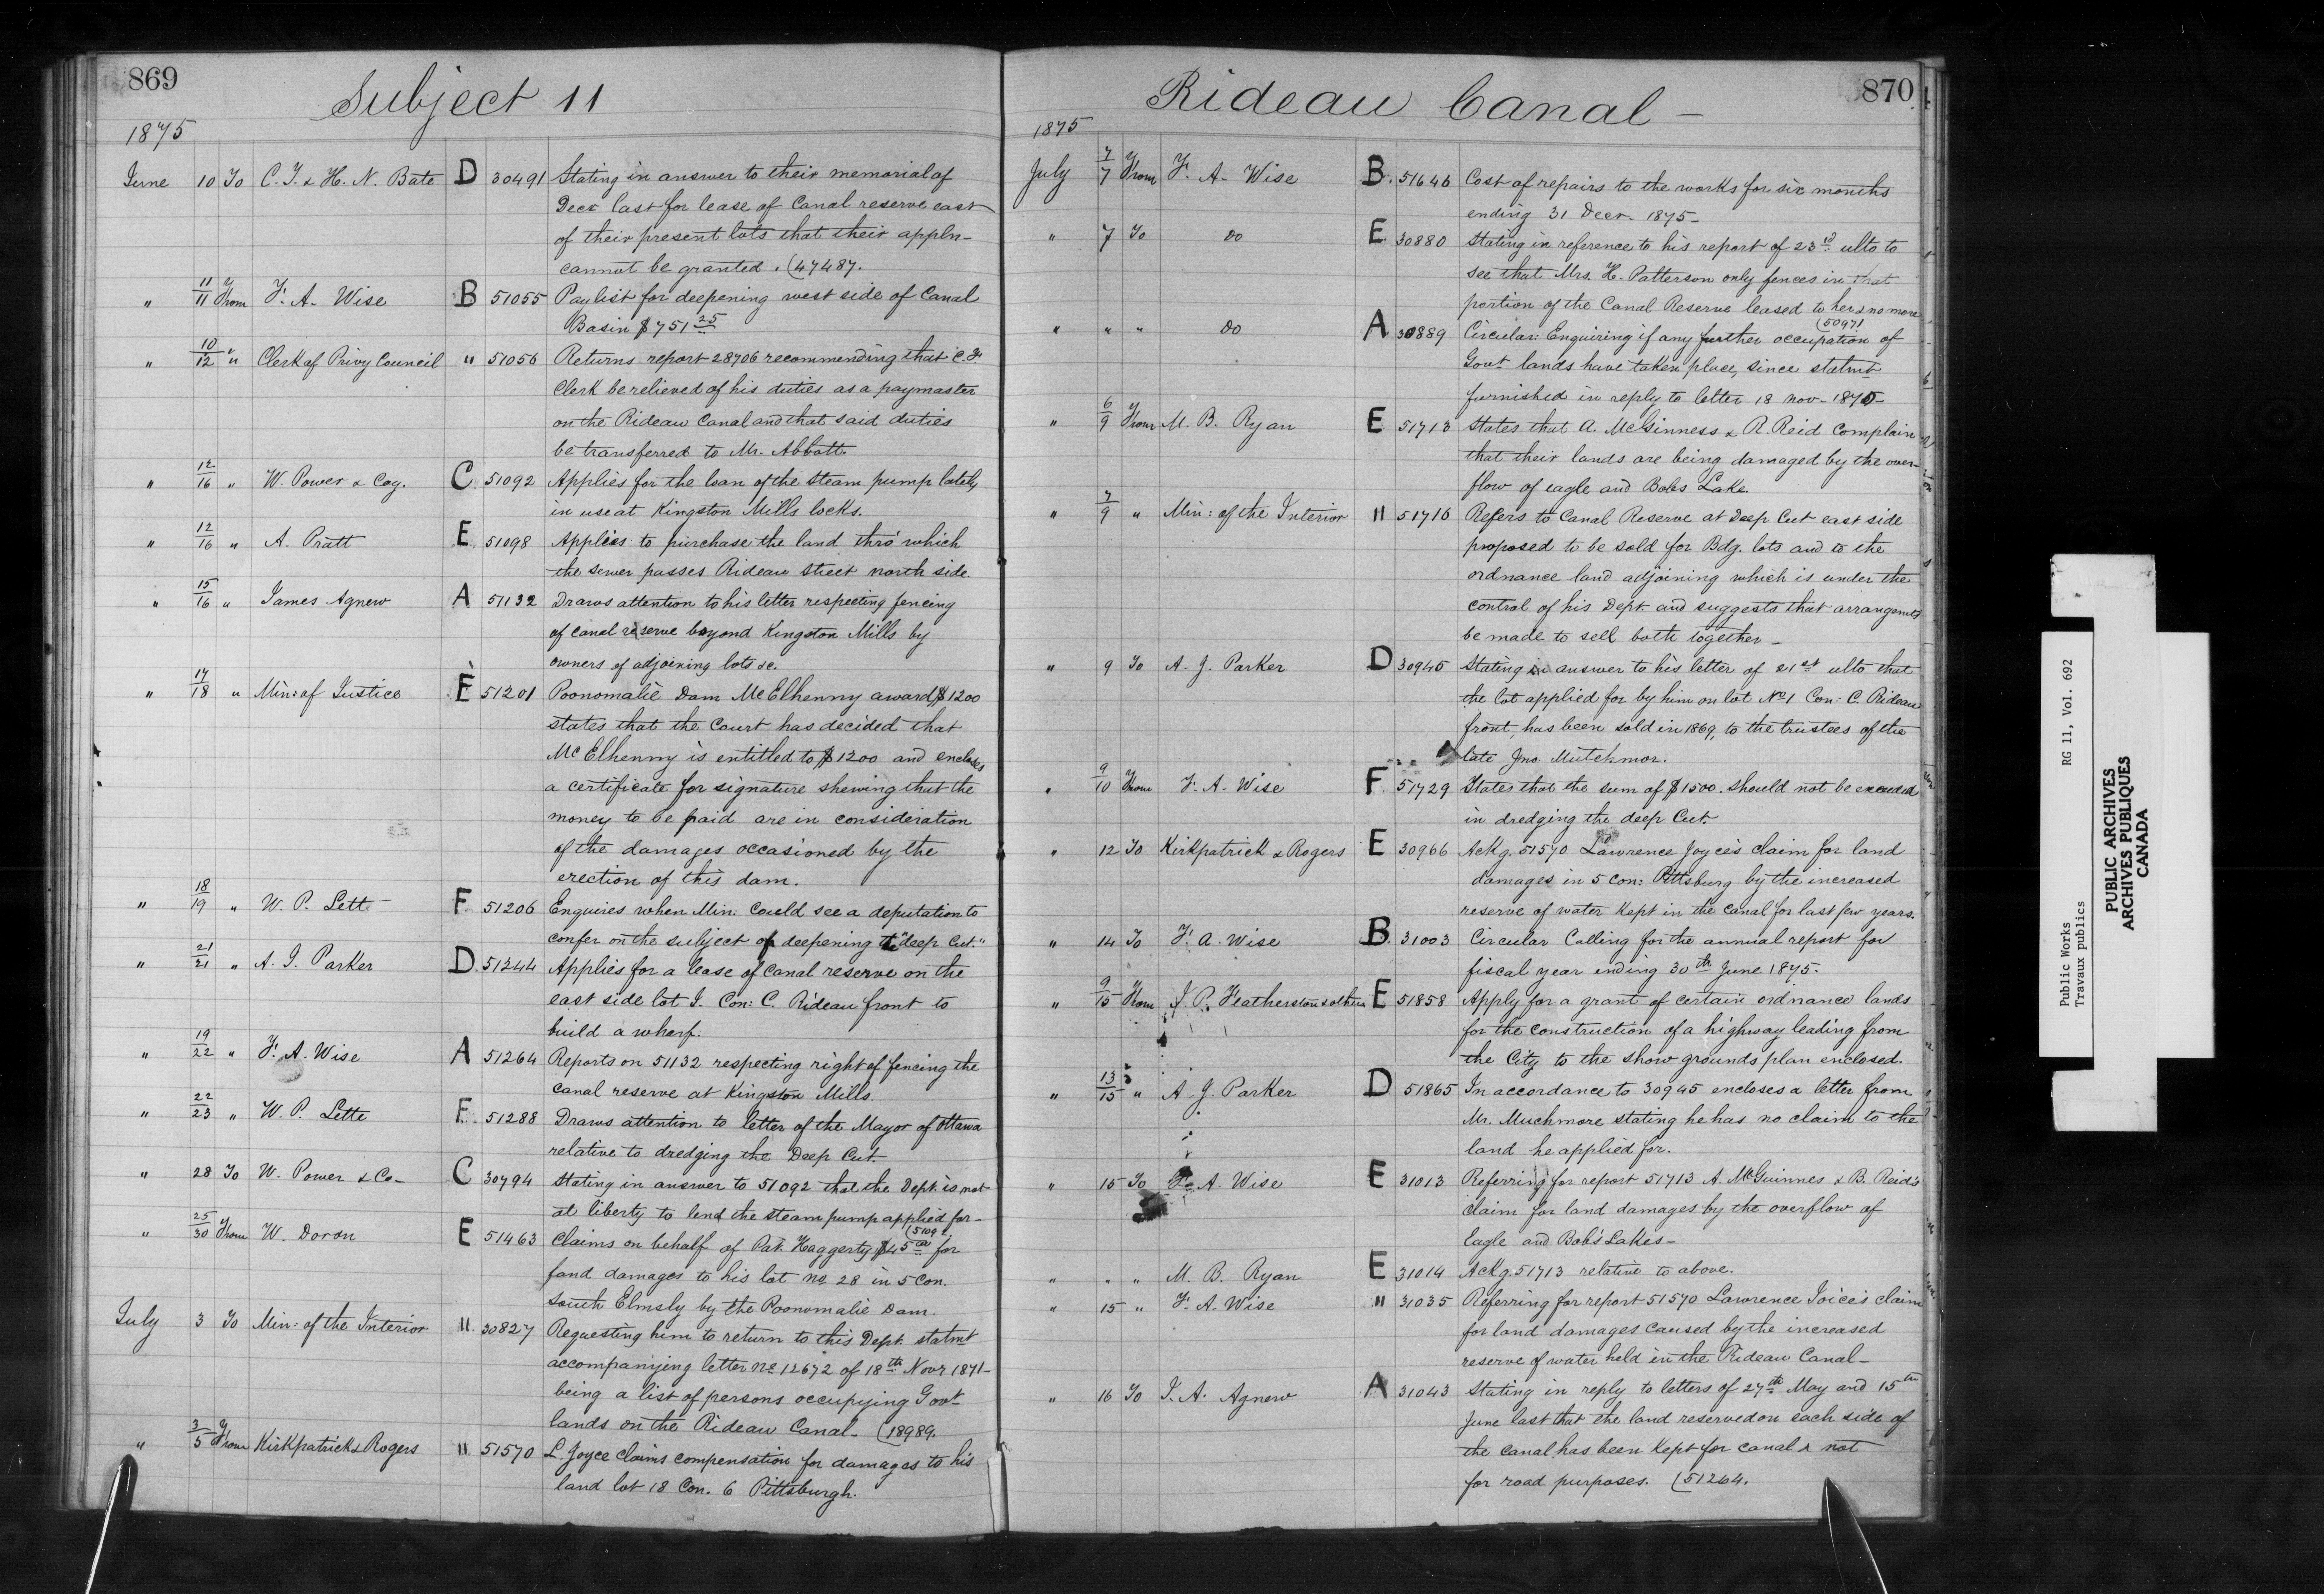 869
Subject 11
1875
June 10 To C. T. & H. N. Bate D 30491 Stating in answer to their memorial of
Decr last for lease of Canal reserve east
of their present lots that their appln -
cannot be granted. (47487.
" 11/11 From F. A. Wise B 51055 Pay list for deepening west side of Canal
Basin $751 25
" 10/12 " Clerk of Privy Council " 51056 Returns report 28706 recommending that C. F.
Clerk be relieved of his duties as a paymaster
on the Rideau Canal and that said duties
be transferred to Mr. Abbott.
" 12/16 " W. Power & Coy. C 51092 Applies for the loan of the steam pump lately
in use at Kingston Mills locks.
" 12/16 " A. Pratt E 51098 Applies to purchase the land thro' which
the sewer passes Rideau Street north side.
" 15/16 " James Agnew A 51132 Draws attention to his letter respecting fencing
of canal reserve beyond Kingston Mills by
owners of adjoining lots &c.
" 17/18 " Min: of Justice E 51201 Poonomalie Dam McElhenny award $1200
states that the Court has decided that
McElhenny is entitled to $1200 and encloses
a certificate for signature shewing that the
money to be paid are in consideration
of the damages occasioned by the
erection of this dam.
" 18/19 " W. P. Lett F 51206 Enquires when Min: could see a deputation to
confer on the subject of deepening the "deep Cut."
" 21/21 " A. J. Parker D 51244 Applies for a lease of Canal reserve on the
east side lot I. Con: C. Rideau front to
build a wharf.
" 19/22 " F. A. Wise A 51264 Reports on 51132 respecting right of fencing the
canal reserve at Kingston Mills.
" 22/23 " W. P. Lette F. 51288 Draws attention to letter of the Mayor of Ottawa
relative to dredging the Deep Cut.
" 28 To W. Power & Co- C 30794 Stating in answer to 51092 that the Dept. is not
at liberty to lend the steam pump applied for -
" 25/30 From W. Doron E 51463 Claims on behalf of Pat. Haggerty $45 00 for
land damages to his lot No 28 in 5 Con.
South Elmsly by the Poonomalie Dam.
July 3 To Min: of the Interior 11 30827 Requesting him to return to this Dept. statmt
accompanying letter No 12672 of 18th Novr 1871-
being a list of persons occupying Govt
lands on the Rideau Canal - (18989.
" 3/5 From Kirkpatrick & Rogers 11 51570 L. Joyce claims compensation for damages to his
land lot 18 Con. 6 Pittsburgh.
870
Rideau Canal -
1875
July 7/7 From F. A. Wise B. 51646 Cost of repairs to the works for six months
ending 31 Decr. 1875-
" 7 To do E 30880 Stating in reference to his report of 23rd ulto to
see that Mrs. H. Patterson only fences in that
portion of the Canal Reserve leased to her & no more
(50971
" " " do A 30889 Circular: Enquiring if any further occupation of
Govt lands have taken place, since statmt
furnished in reply to letter 18 Nov - 1870-
" 6/9 From M. B. Ryan E 51713 States that A. McGinness & R. Reid complain
that their lands are being damaged by the over-
flow of eagle and Bobs Lake.
" 7/9 " Min: of the Interior 11 51716 Refers to Canal Reserve at Deep Cut east side
proposed to be sold for Bdg. lots and to the
ordnance land adjoining which is under the
control of his Dept. and suggests that arrangemts
be made to sell both together -
" 9 To A. J. Parker D 30945 Stating in answer to his letter of 21st ulto that
the lot applied for by him on lot No 1 Con: C. Rideau
front, has been sold in 1869, to the trustees of the
late Jno. Mutchmor.
" 9/10 From F. A. Wise F. 51729 States that the sum of $1500. should not be exceeded
in dredging the deep Cut.
" 12 To Kirkpatrick & Rogers E 30966 Ackg. 51570 Lawrence Joyce's claim for land
damages in 5 Con: Pittsburg by the increased
reserve of water kept in the Canal for last few years.
" 14 To F. A. Wise B. 31003 Circular Calling for the annual report for
fiscal year ending 30th June 1875.
" 9/15 From J. P. Featherston & others E 51858 Apply for a grant of certain ordnance lands
for the construction of a highway leading from
the City to the show grounds plan enclosed.
" 13/15 " A. J. Parker D 51865 In accordance to 30945 encloses a letter from
Mr. Muchmore stating he has no claim to the
land he applied for.
" 15 To F. A. Wise E 31013 Referring for report 51713 A. McGuinnes & B. Reid's
claim for land damages by the overflow of
Eagle and Bob's Lakes -
" " " M. B. Ryan E 31014 Ackg. 51713 relative to above.
" 15 " F. A. Wise 11 31035 Referring for report 51570 Lawrence Joice's claim
for land damages caused by the increased
reserve of water held in the Rideau Canal -
" 16 To J. A. Agnew A 31043 Stating in reply to letters of 27th May and 15th
June last that the land reserved on each side of
the canal has been kept for canal & not
for road purposes. (51264.
Public Works RG 11, Vol. 692
Travaux publics
PUBLIC ARCHIVES
ARCHIVES PUBLIQUES
CANADA